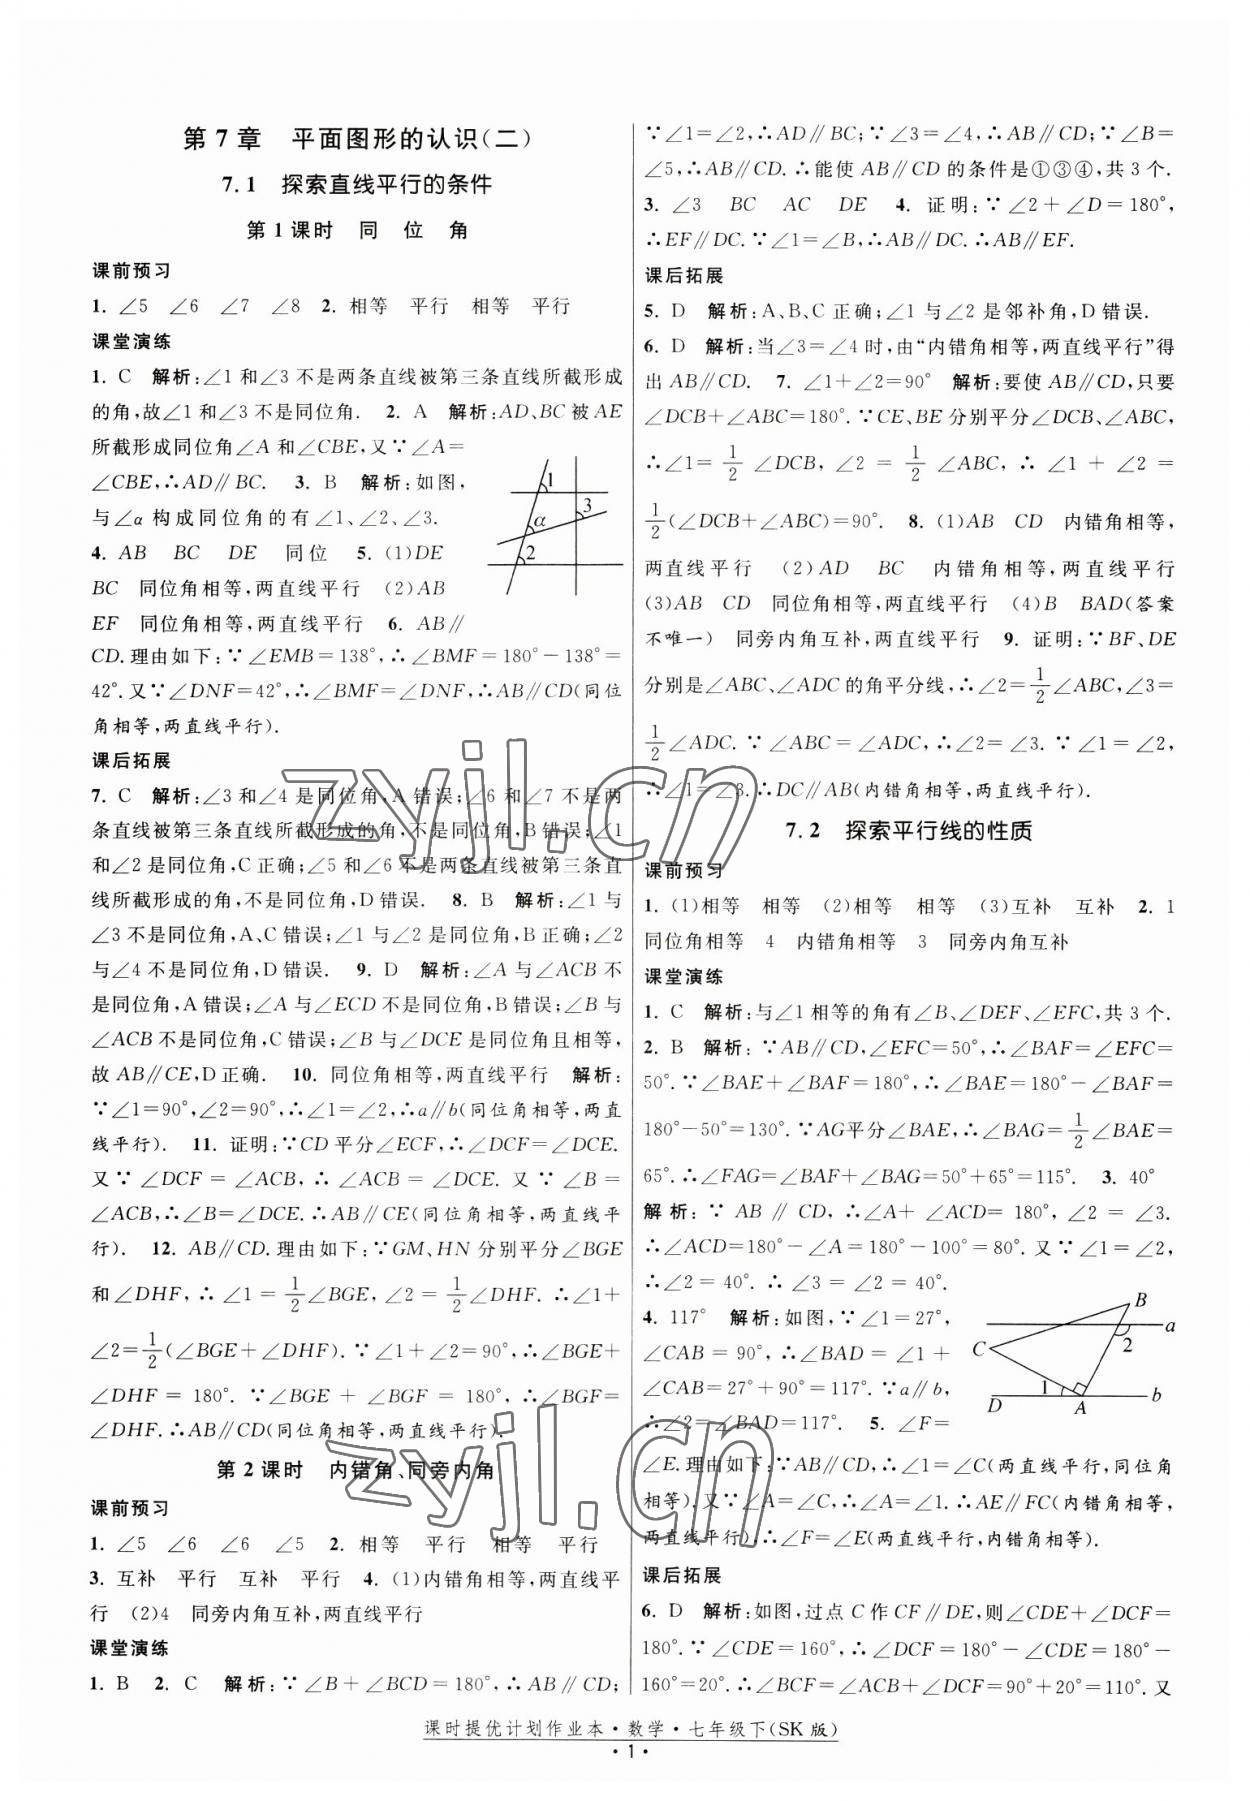 第 7 章　平面图形的认识(二)
7.1　探索直线平行的条件
第 1 课时　同　位　角
课前预习
1. ∠5　∠6　∠7　∠8　2. 相等　平行　相等　平行
课堂演练
1. C　解析:∠1 和∠3 不是两条直线被第三条直线所截形成
的角,故∠1 和∠3 不是同位角.　2. A　解析:AD、BC 被 AE
所截形成同位角∠A 和∠CBE,又∵∠A=
∠CBE,∴AD∥BC.　3. B　解析:如图,
与∠α 构成同位角的有∠1、∠2、∠3.
4. AB　BC　DE　同位　5. (1)DE
BC　同位角相等,两直线平行　(2)AB
EF　同位角相等,两直线平行　6. AB∥
CD.理由如下:∵∠EMB=138°,∴∠BMF=180°-138°=
42°.又∵∠DNF=42°,∴∠BMF=∠DNF,∴AB∥CD(同位
角相等,两直线平行).
1
α
3
2
课后拓展
7. C　解析:∠3 和∠4 是同位角,A 错误;∠6 和∠7 不是两
条直线被第三条直线所截形成的角,不是同位角,B 错误;∠1
和∠2 是同位角,C 正确;∠5 和∠6 不是两条直线被第三条直
线所截形成的角,不是同位角,D 错误.　8. B　解析:∠1 与
∠3 不是同位角,A、C 错误;∠1 与∠2 是同位角,B 正确;∠2
与∠4 不是同位角,D 错误.　9. D　解析:∠A 与∠ACB 不
是同位角,A 错误;∠A 与∠ECD 不是同位角,B 错误;∠B 与
∠ACB 不是同位角,C 错误;∠B 与∠DCE 是同位角且相等,
故 AB∥CE,D 正确.　10. 同位角相等,两直线平行　解析:
∵∠1=90°,∠2=90°,∴∠1=∠2,∴a∥b(同位角相等,两直
线平行).　11. 证明:∵CD 平分∠ECF,∴∠DCF=∠DCE.
又∵∠DCF=∠ACB,∴∠ACB=∠DCE.又∵∠B=
∠ACB,∴∠B=∠DCE.∴AB∥CE(同位角相等,两直线平
行).　12. AB∥CD.理由如下:∵GM、HN 分别平分∠BGE
和∠DHF,∴∠1=1/2∠BGE,∠2=1/2∠DHF.∴∠1+
∠2=1/2(∠BGE+∠DHF).∵∠1+∠2=90°,∴∠BGE+
∠DHF=180°.∵∠BGE+∠BGF=180°,∴∠BGF=
∠DHF.∴AB∥CD(同位角相等,两直线平行).
第 2 课时　内错角、同旁内角
课前预习
1. ∠5　∠6　∠6　∠5　2. 相等　平行　相等　平行
3. 互补　平行　互补　平行　4. (1)内错角相等,两直线平
行　(2)4　同旁内角互补,两直线平行
课堂演练
1. B　2. C　解析:∵∠B+∠BCD=180°,∴AB∥CD;
∵∠1=∠2,∴AD∥BC;∵∠3=∠4,∴AB∥CD;∵∠B=
∠5,∴AB∥CD.∴能使 AB∥CD 的条件是①③④,共 3 个.
3. ∠3　BC　AC　DE　4. 证明:∵∠2+∠D=180°,
∴EF∥DC.∵∠1=∠B,∴AB∥DC.∴AB∥EF.
课后拓展
5. D　解析:A、B、C 正确;∠1 与∠2 是邻补角,D 错误.
6. D　解析:当∠3=∠4 时,由“内错角相等,两直线平行”得
出 AB∥CD.　7. ∠1+∠2=90°　解析:要使 AB∥CD,只要
∠DCB+∠ABC=180°.∵CE、BE 分别平分∠DCB、∠ABC,
∴∠1=1/2∠DCB,∠2=1/2∠ABC,∴∠1+∠2=
1/2(∠DCB+∠ABC)=90°.　8. (1)AB　CD　内错角相等,
两直线平行　(2)AD　BC　内错角相等,两直线平行
(3)AB　CD　同位角相等,两直线平行　(4)B　BAD(答案
不唯一)　同旁内角互补,两直线平行　9. 证明:∵BF、DE
分别是∠ABC、∠ADC 的角平分线,∴∠2=1/2∠ABC,∠3=
1/2∠ADC.∵∠ABC=∠ADC,∴∠2=∠3.∵∠1=∠2,
∴∠1=∠3.∴DC∥AB(内错角相等,两直线平行).
7.2　探索平行线的性质
课前预习
1. (1)相等　相等　(2)相等　相等　(3)互补　互补　2. 1
同位角相等　4　内错角相等　3　同旁内角互补
课堂演练
1. C　解析:与∠1 相等的角有∠B、∠DEF、∠EFC,共 3 个.
2. B　解析:∵AB∥CD,∠EFC=50°,∴∠BAF=∠EFC=
50°.∵∠BAE+∠BAF=180°,∴∠BAE=180°-∠BAF=
180°-50°=130°.∵AG平分∠BAE,∴∠BAG=1/2∠BAE=
65°.∴∠FAG=∠BAF+∠BAG=50°+65°=115°.　3. 40°
解析:∵AB∥CD,∴∠A+∠ACD=180°,∠2=∠3.
∴∠ACD=180°-∠A=180°-100°=80°.又∵∠1=∠2,
∴∠2=40°.∴∠3=∠2=40°.
4. 117°　解析:如图,∵∠1=27°,
∠CAB=90°,∴∠BAD=∠1+
∠CAB=27°+90°=117°.∵a∥b,
∴∠2=∠BAD=117°.　5. ∠F=
∠E.理由如下:∵∠1=∠C(两直线平行,同位角
相等),又∵∠A=∠C,∴∠A=∠1.∴AE∥FC(内错角相等,
两直线平行).∴∠F=∠E(两直线平行,内错角相等).
B
a
2
C
1
b
D
A
课后拓展
6. D　解析:如图,过点 C 作 CF∥DE,则∠CDE+∠DCF=
180°.∵∠CDE=160°,∴∠DCF=180°-∠CDE=180°-
160°=20°.∴∠BCF=∠BCD+∠DCF=90°+20°=110°.又
课时提优计划作业本·数学·七年级下(SK 版)
· 1 ·
zyjl.cn
zyjl.cn